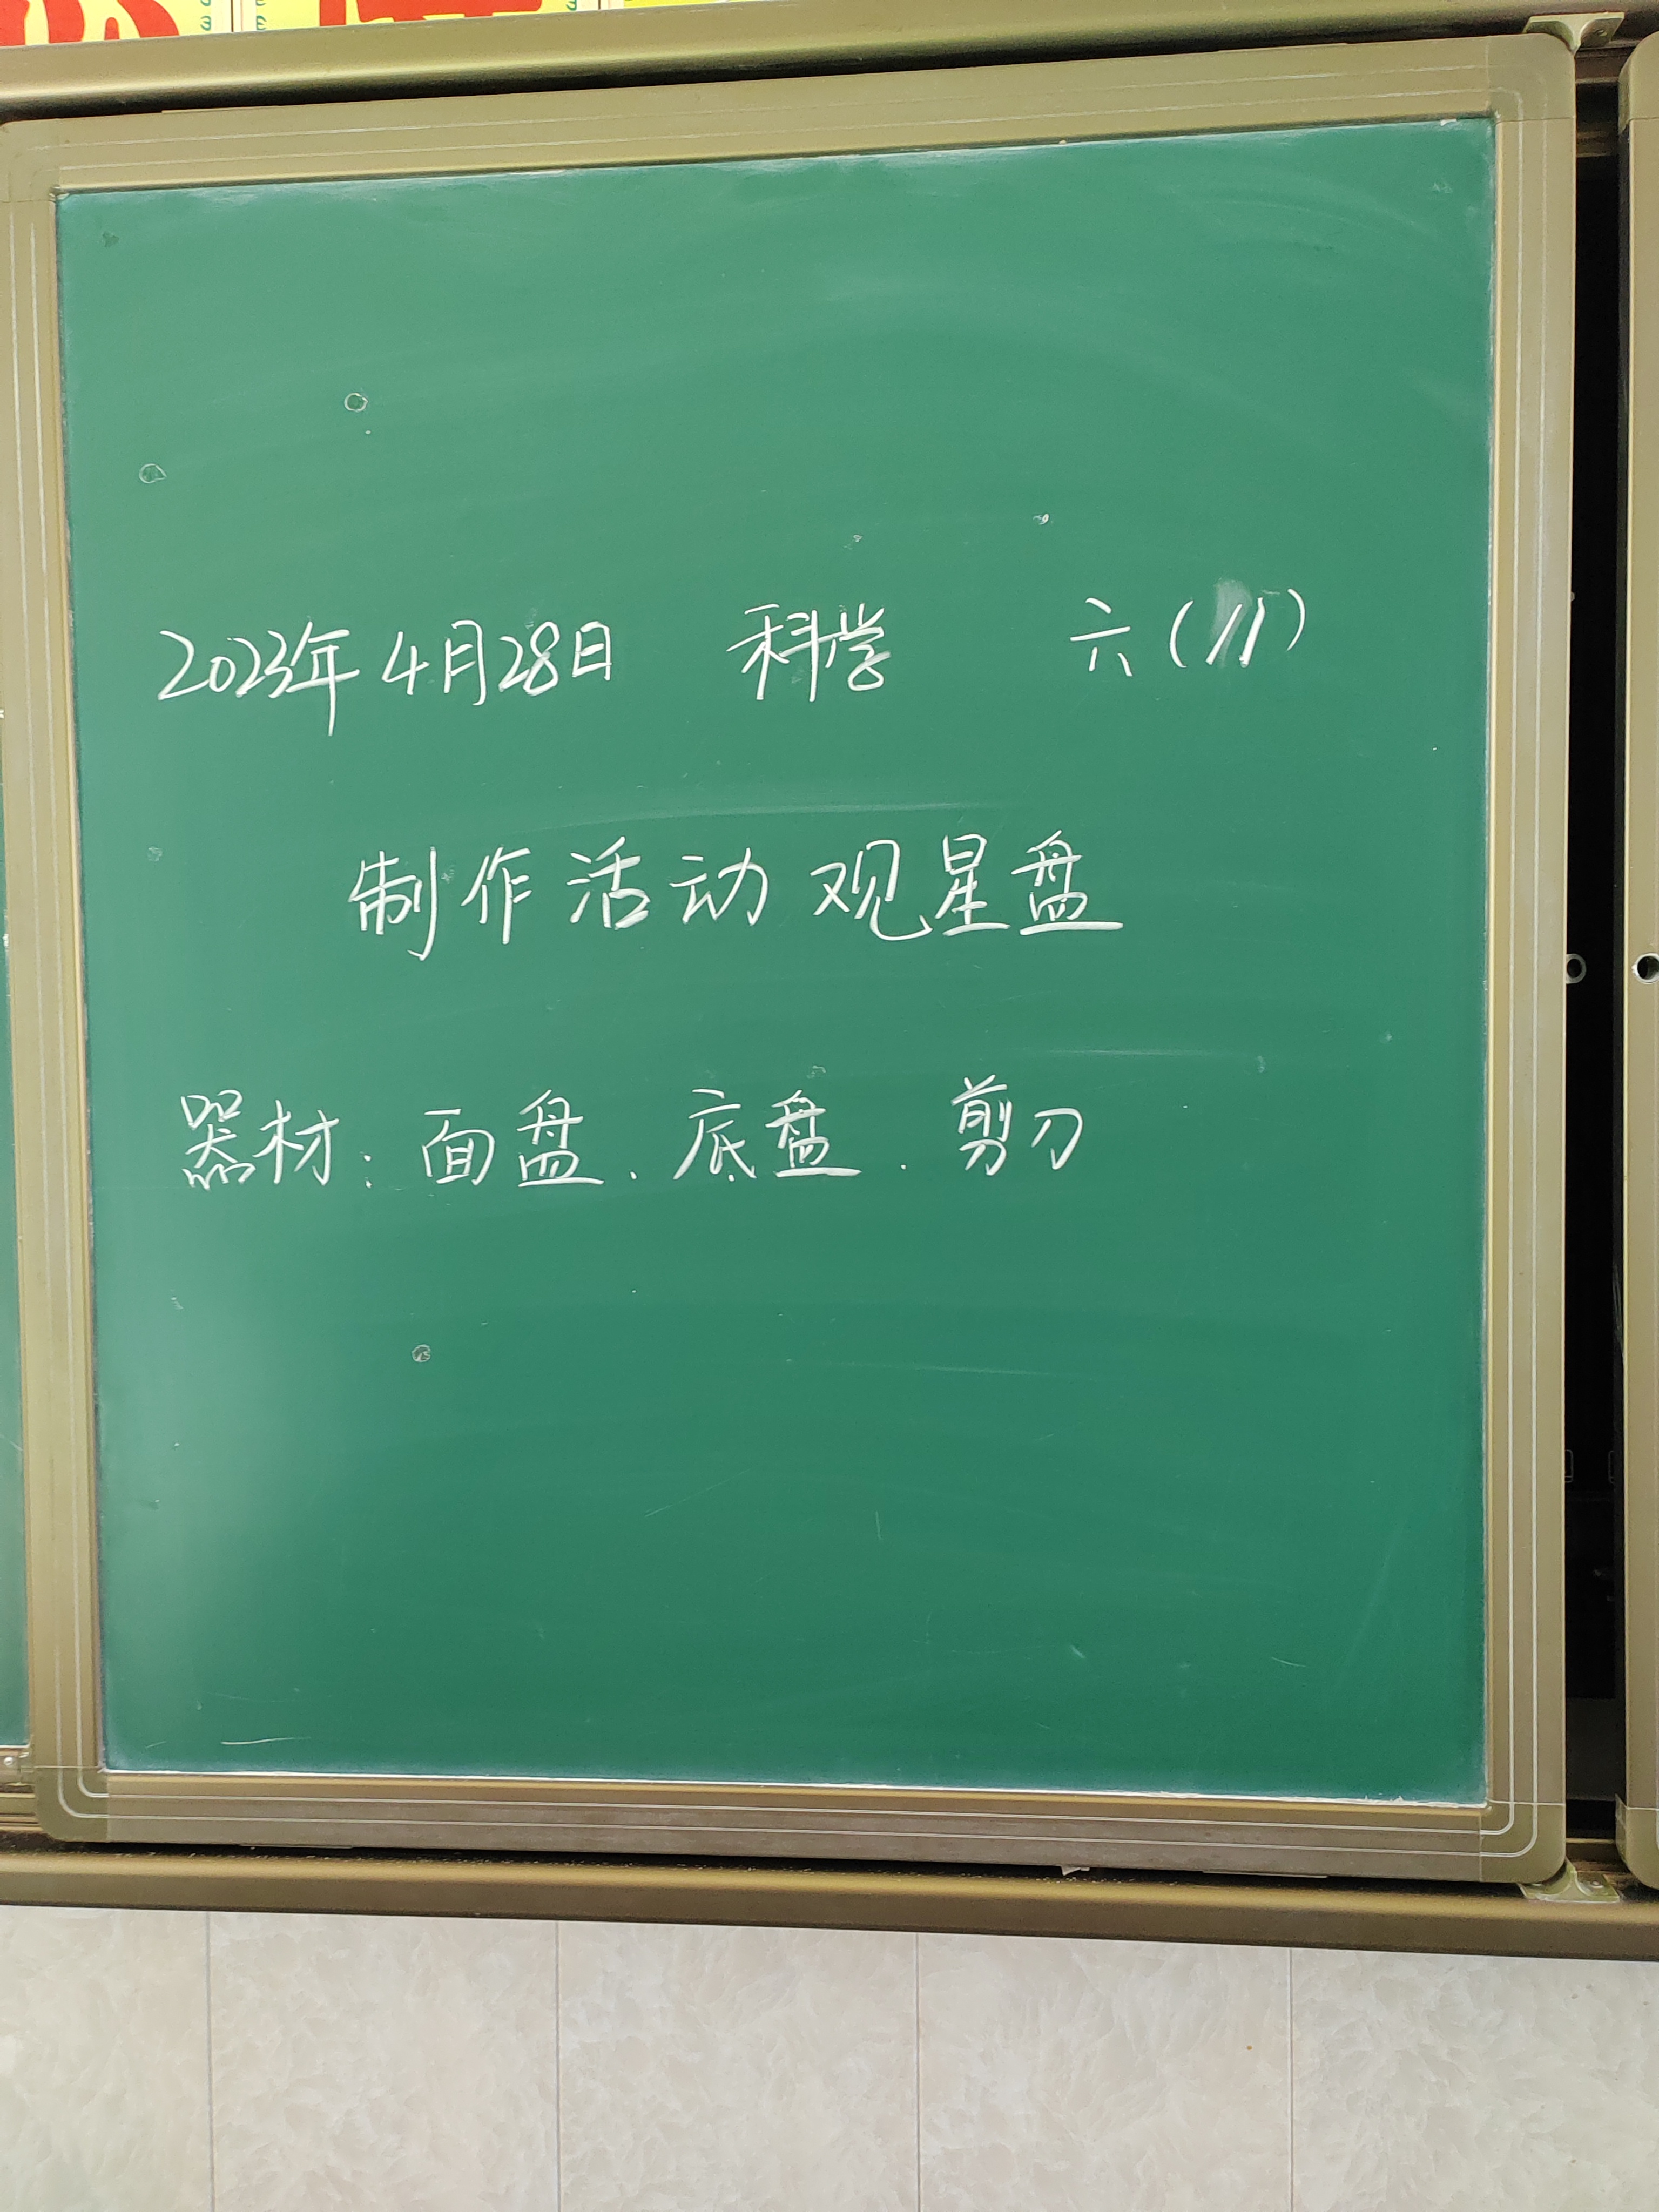 2023年4月28日 科学 六(11)
制作活动观星盘
器材:面盘、底盘、剪刀